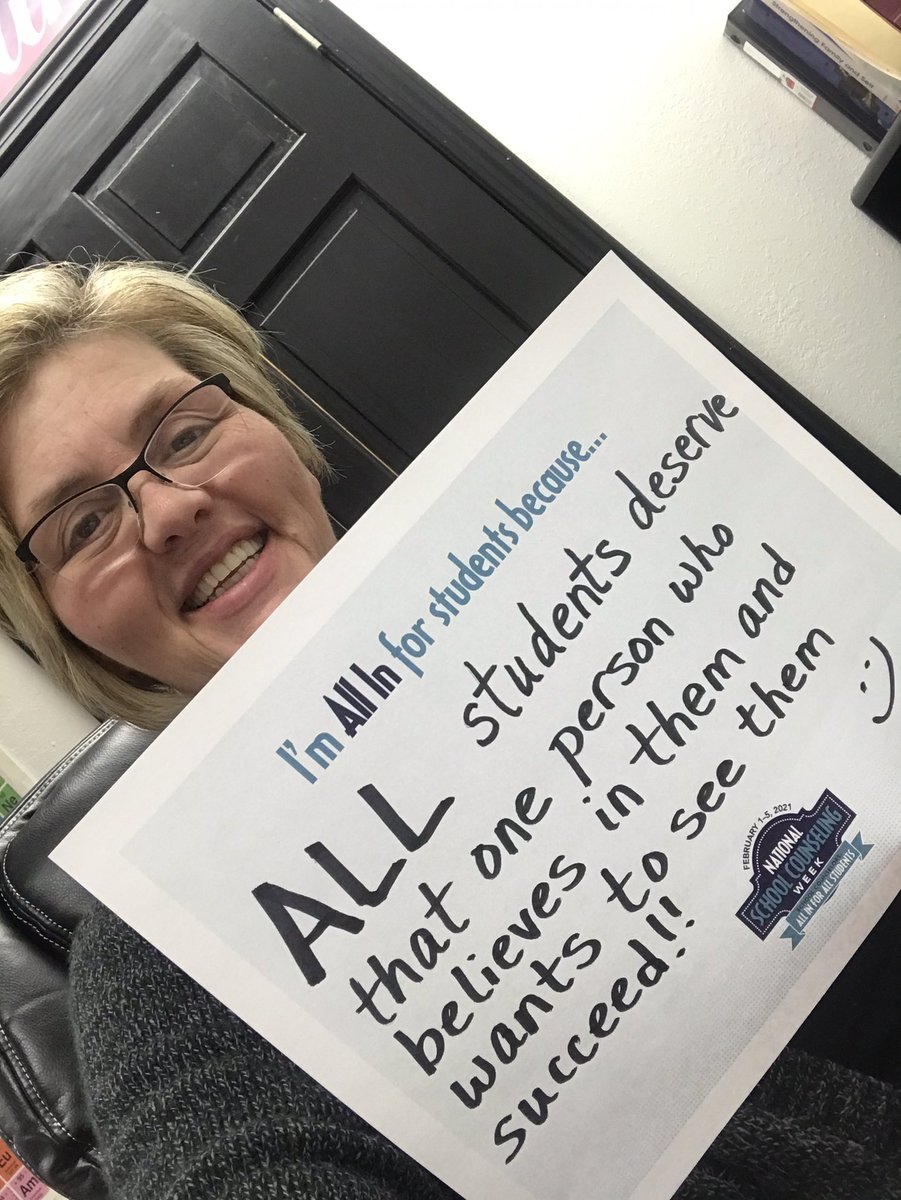 Strengthening Family and Self
I'm All In for students because...
ALL students deserve
that one person who
believes in them and
wants to see them
succeed!! :)
FEBRUARY 1-5, 2021
NATIONAL
SCHOOL COUNSELING
WEEK
ALL IN FOR ALL STUDENTS
Na
Eu
Am